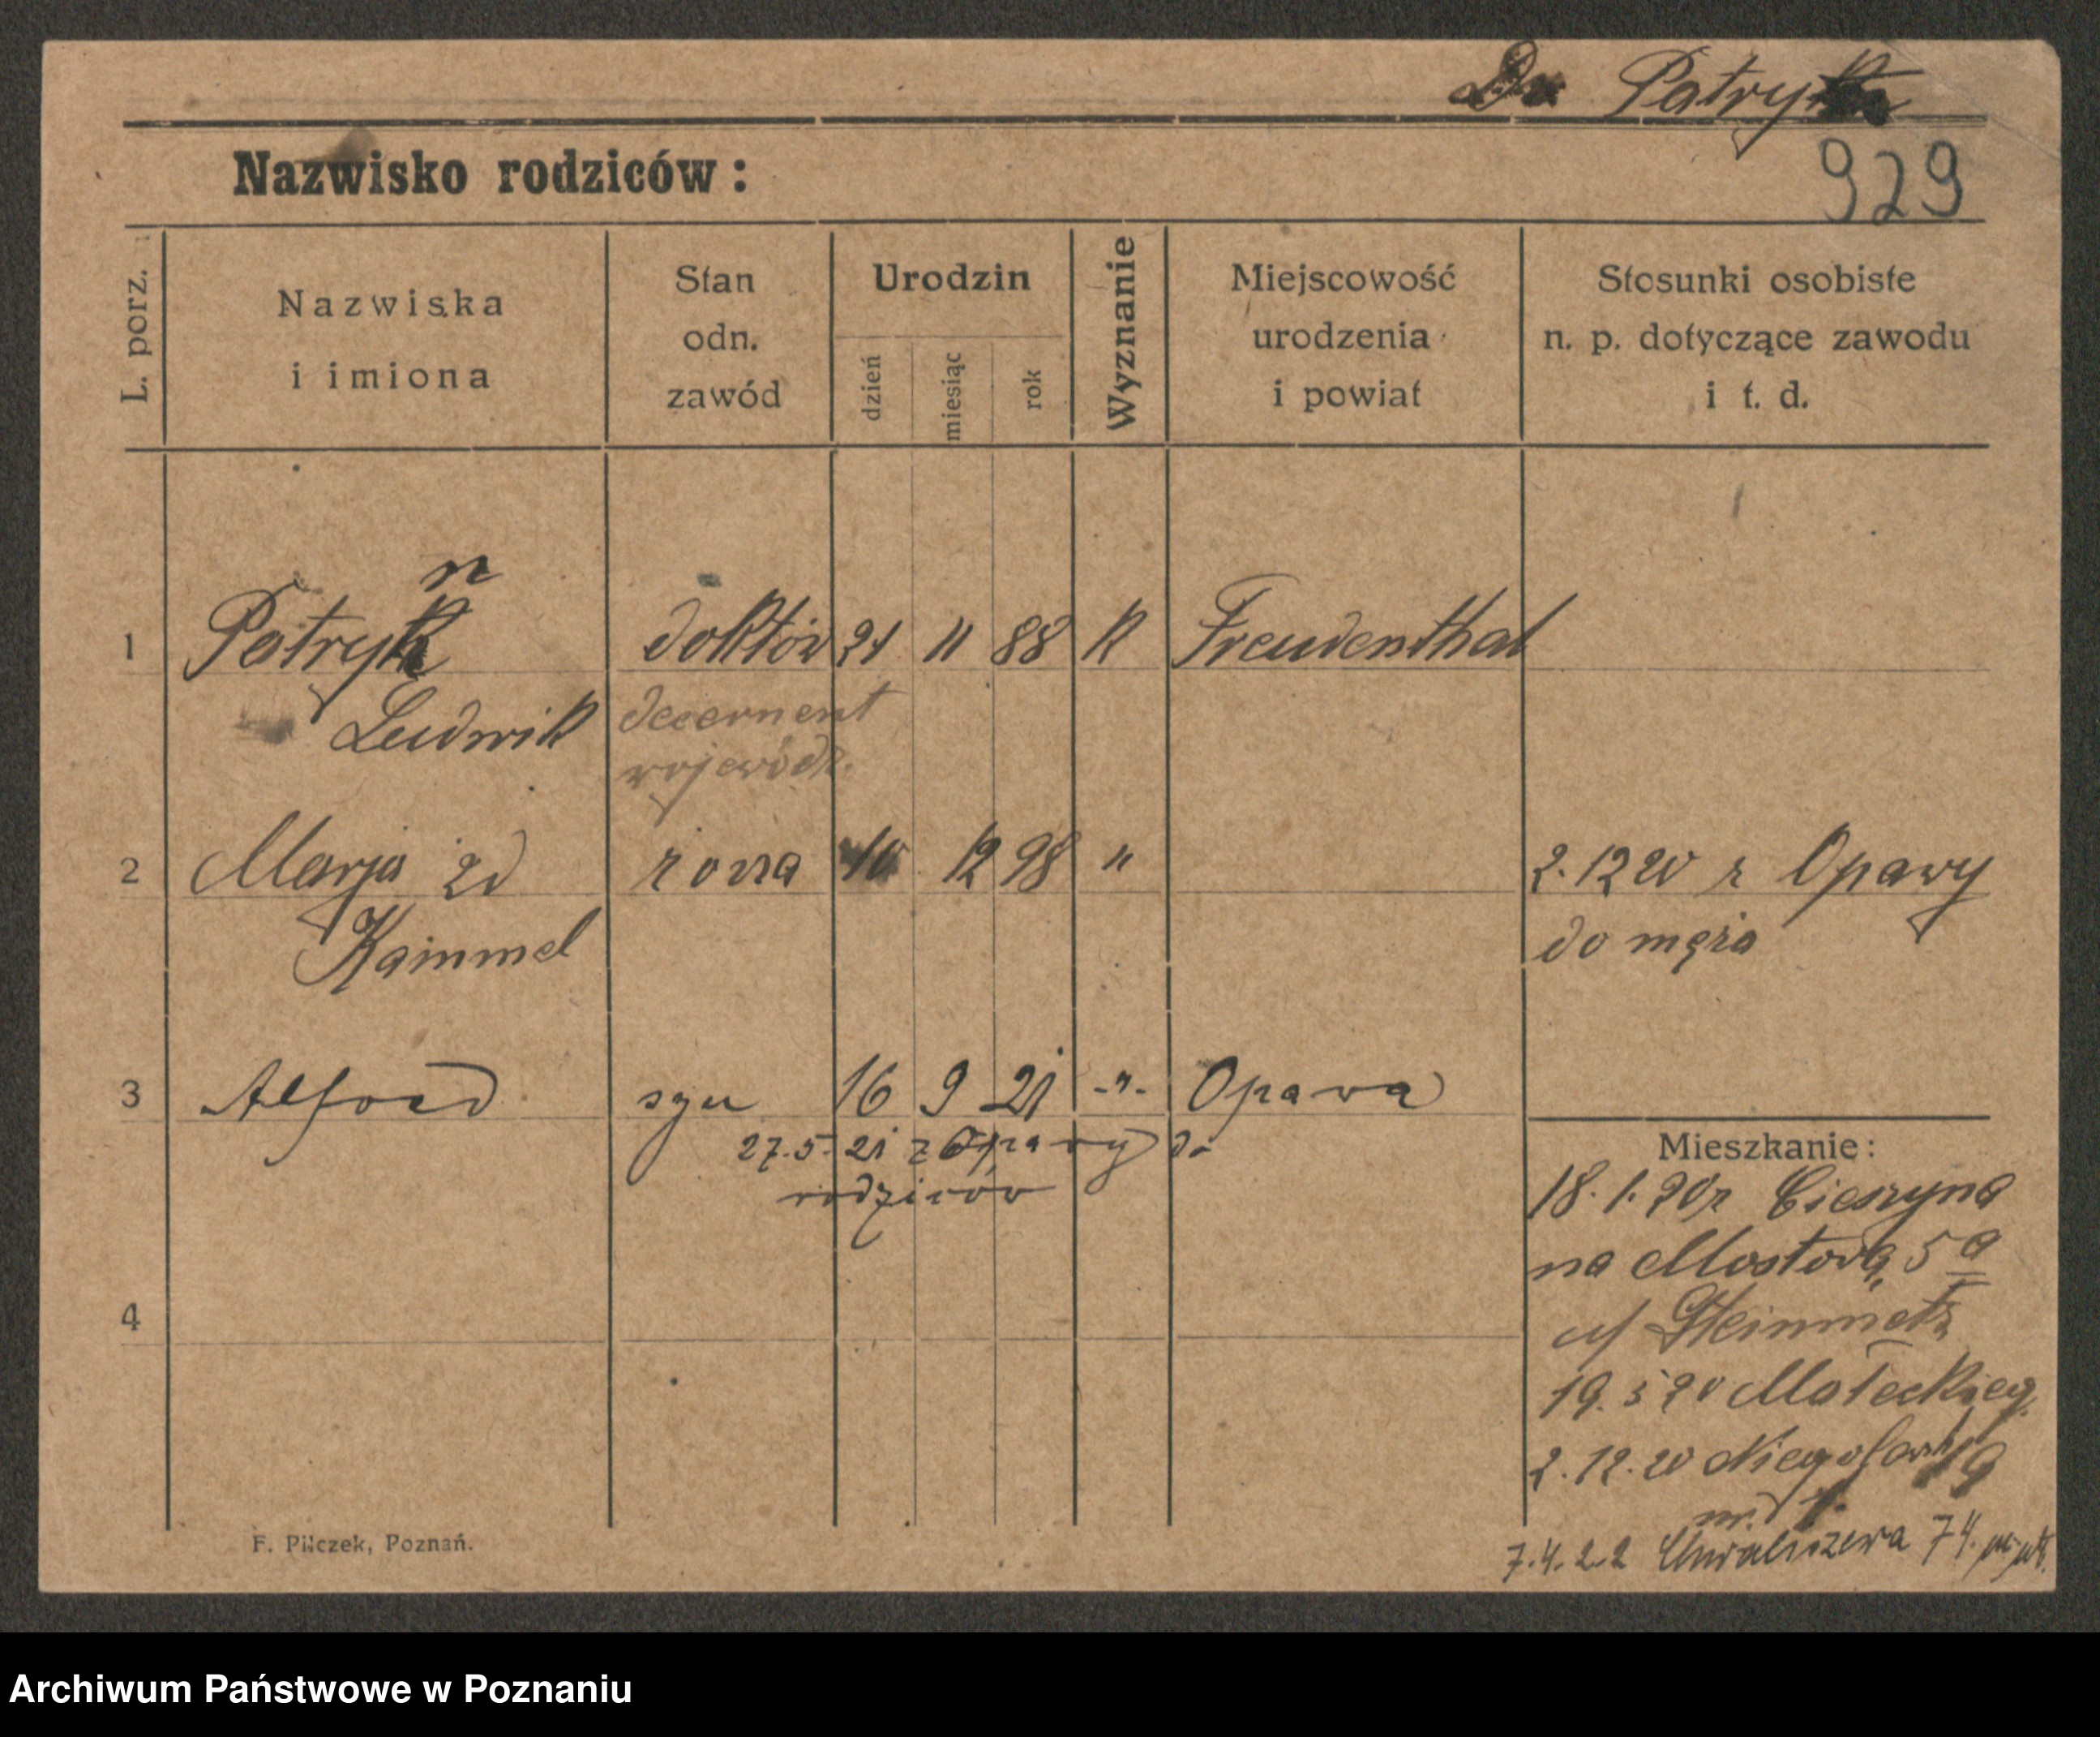 Dr Patryn
Nazwisko rodziców:
929
L. porz.
Nazwiska
i imiona
Stan
odn.
zawód
Urodzin
dzień
miesiąc
rok
Wyznanie
Miejscowość
urodzenia
i powiat
Stosunki osobiste
n. p. dotyczące zawodu
i t. d.
n
1 Patryn doktór 21 11 88 K Freudenthal
Ludwik decernent
wojewódz.
2 Marja zd żona 10 12 98 " 2.12 20 z Opawy
Kammel do męża
3 Alfred syn 16 9 21 -"- Opawa
27.5.21 z Opawy do
rodziców
Mieszkanie:
18.1.20 z Cieszyna
na Mostową 5a
u/ Steinmetz
4
19.5 20 Małeckieg.
2.12.20 Niegolewsk
nr.
7.4.22 Chwaliszewo 74.
F. Pilczek, Poznań.
Archiwum Państwowe w Poznaniu